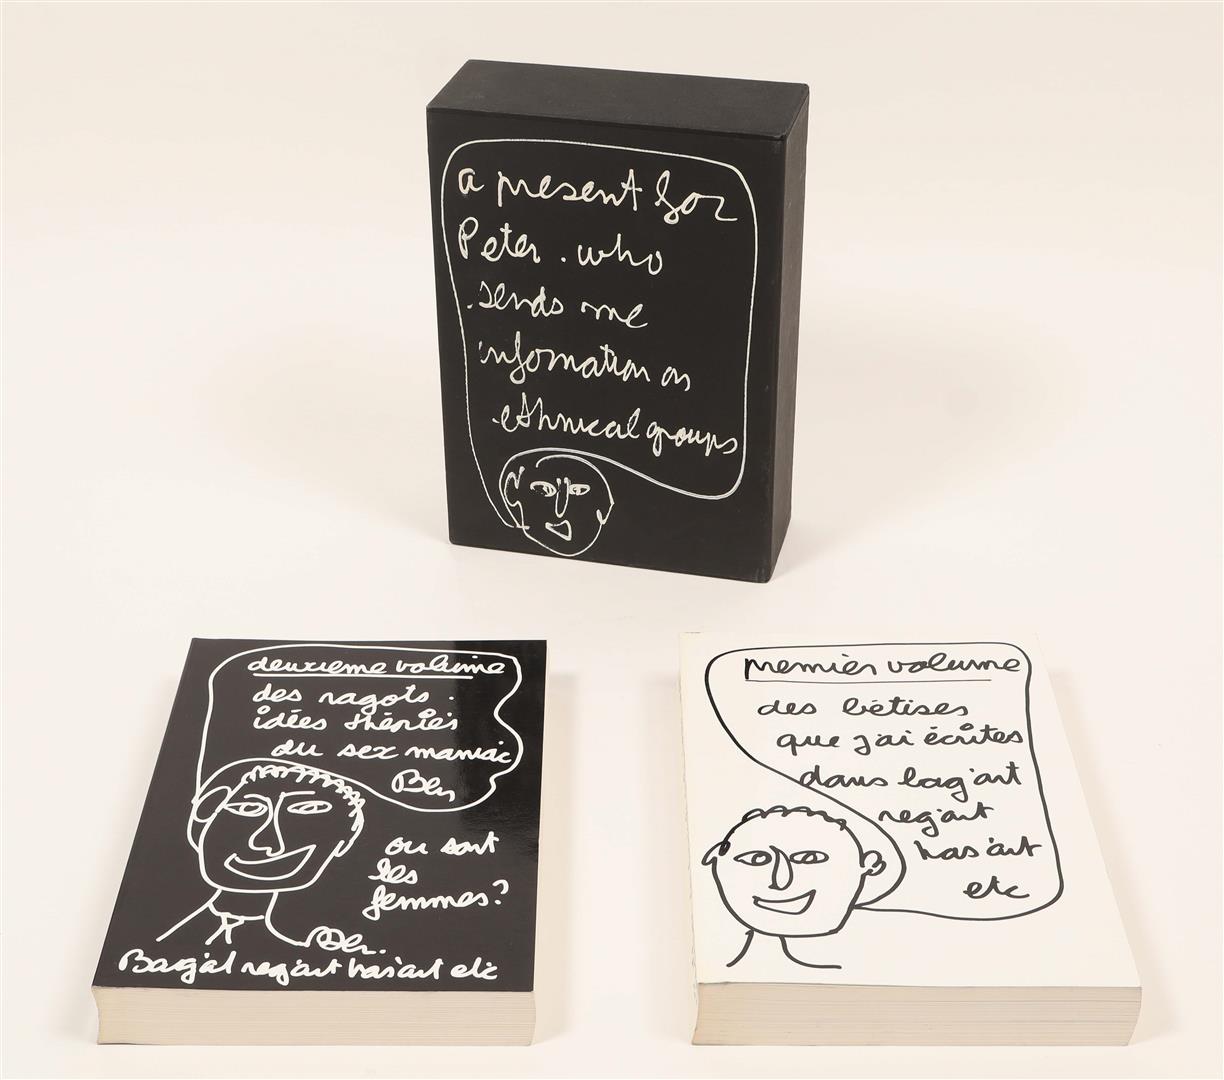 a present for
Peter. who
sends me
infomation on
ethnical groups
deuxieme volume
des ragots.
idées théries
du sex maniac
Ben
ou sont
les
femmes?
Ben.
Bag'at reg'art has'art etc
premier volume
des bétises
que j'ai écrites
dans bag'art
reg'art
has'art
etc